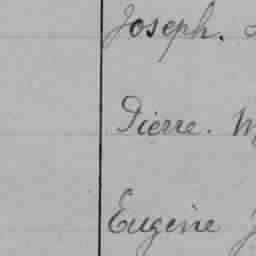 Joseph.
Pierre. M
Eugène J